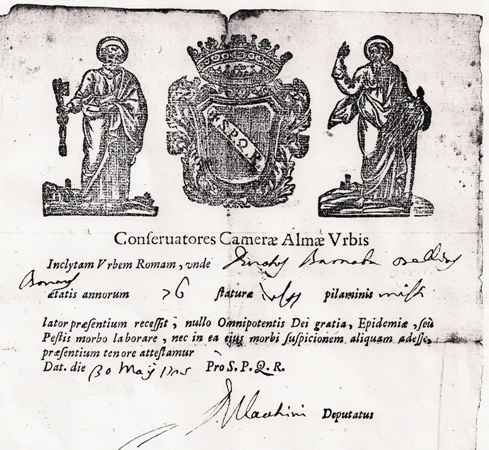 S.P.Q.R.
Conseruatores Cameræ Almæ Vrbis
Inclytam Vrbem Romam, unde Barnaba
ætatis annorum 36 staturæ pilaminis
lator præsentium recessit, nullo Omnipotentis Dei gratia, Epidemiæ, seù
Pestis morbo laborare, nec in ea ejus morbi suspicionem aliquam adesse,
præsentium tenore attestamur
Dat. die 30 Maÿ Pro S. P. Q. R.
Deputatus